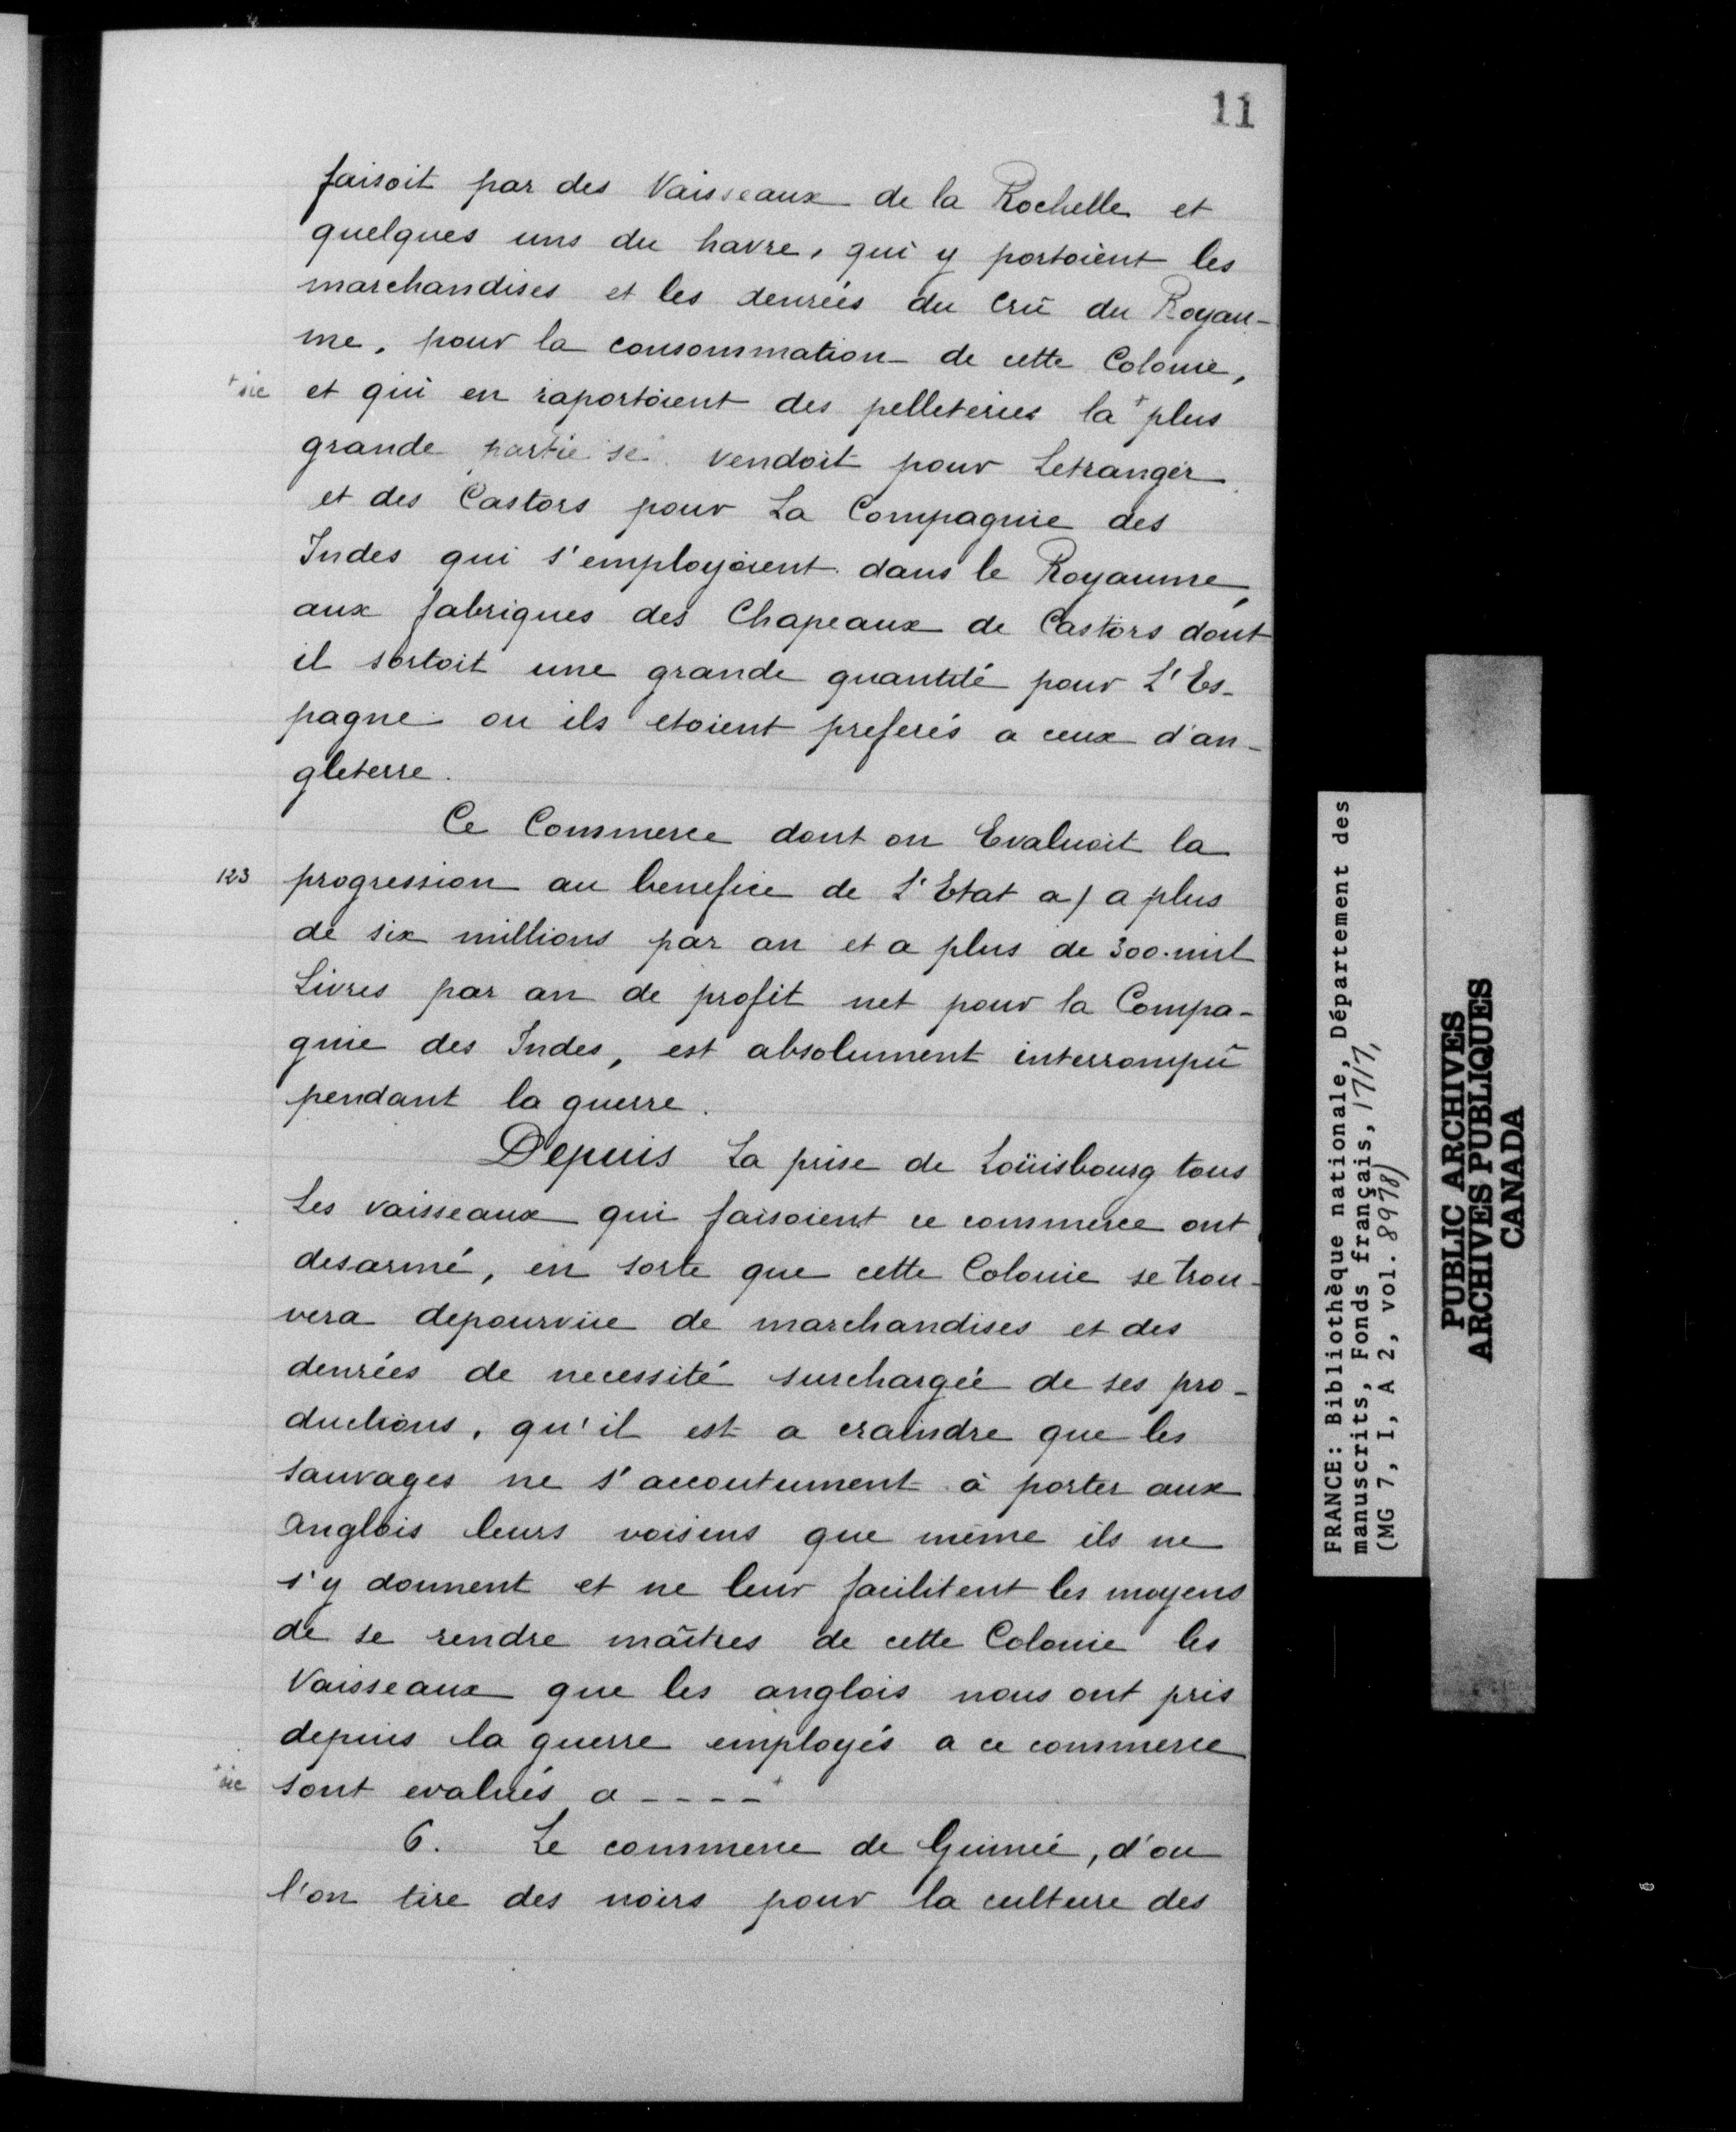 11
faisoit par des Vaisseaux de la Rochelle et
quelques uns du havre, qui y portoient les
marchandises et les denrées du Crû du Royau-
me, pour la consommation de cette Colonie,
+ sic et qui en raportoient des pelleteries la + plus
grande partie se vendoit pour Letranger
et des Castors pour La Compagnie des
Indes qui s'employoient dans le Royaume,
aux fabriques des Chapeaux de Castors dont
il sortoit une grande quantité pour L'Es-
pagne ou ils etoient preferés a ceux d'an-
gleterre.
Ce Commerce dont on Evaluoit la
123 progression au benefice de L'Etat a / a plus
de six millions par an et a plus de 300.mil
Livres par an de profit net pour la Compa-
gnie des Indes, est absolument interrompû
pendant la guerre.
Depuis La prise de Loüisbourg tous
Les vaisseaux qui faisoient ce commerce ont
desarmé, en sorte que cette Colonie se trou-
vera depourvüe de marchandises et des
denrées de necessité surchargée de ses pro-
ductions, qu'il est a craindre que les
sauvages ne s'accoutument à porter aux
anglois leurs voisins que même ils ne
s'y donnent et ne leur facilitent les moyens
de se rendre maîtres de cette Colonie les
Vaisseaux que les anglois nous ont pris
depuis la guerre employés a ce commerce
+ sic sont evalués a - - - - +
6. Le commerce de Guinée, d'ou
l'on tire des noirs pour la culture des
FRANCE: Bibliothèque nationale, Département des
manuscrits, Fonds français, 1717,
(MG 7, I, A 2, vol. 8978)
PUBLIC ARCHIVES
ARCHIVES PUBLIQUES
CANADA